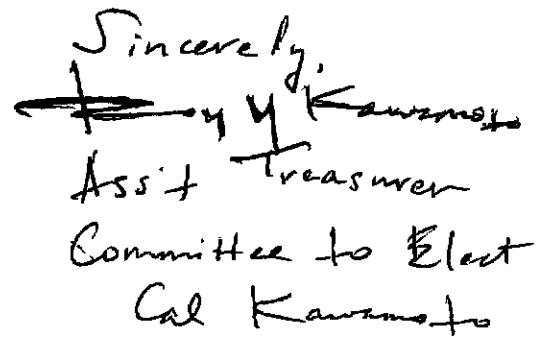 Sincerely,
Kawamoto
Ass't Treasurer
Committee to Elect
Cal Kawamoto